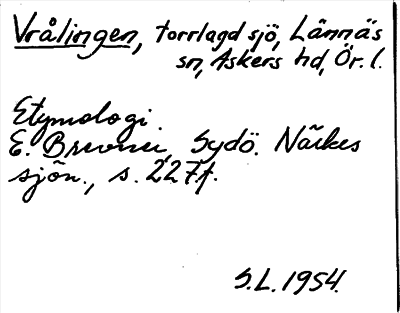 Vrålingen, torrlagd sjö, Lännäs
sn, Askers hd, Ör. l.
Etymologi.
E. Brevner, Sydö. Närkes
sjön., s. 227f.
S.L. 1954.